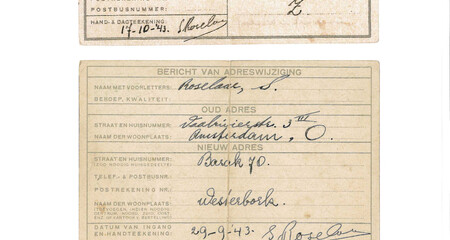 POSTBUSNUMMER:
Z.
HAND- & DAGTEEKENING: 17-10-'43. S. Roselaar
BERICHT VAN ADRESWIJZIGING
NAAM MET VOORLETTERS: Roselaar, S.
BEROEP, KWALITEIT:
OUD ADRES
STRAAT EN HUISNUMMER: 3 III
NAAM DER WOONPLAATS: Amsterdam. O.
NIEUW ADRES
STRAAT EN HUISNUMMER: Barak 70.
TELEF.- & POSTBUSNR.
POSTREKENING Nr.
NAAM DER WOONPLAATS: Westerbork.
DATUM VAN INGANG 29-9-'43. S. Roselaar
EN HANDTEEKENING: